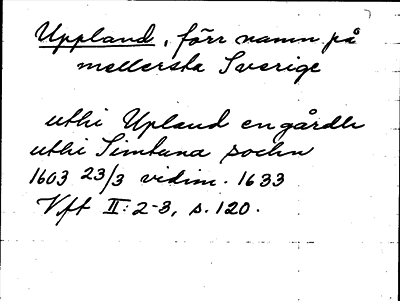 Uppland, förr namn på
mellersta Sverige
uthi Upland en gårdh
uthi Simtuna sochn
1603 23/3 vidim. 1633
Vft II:2-3, s. 120.